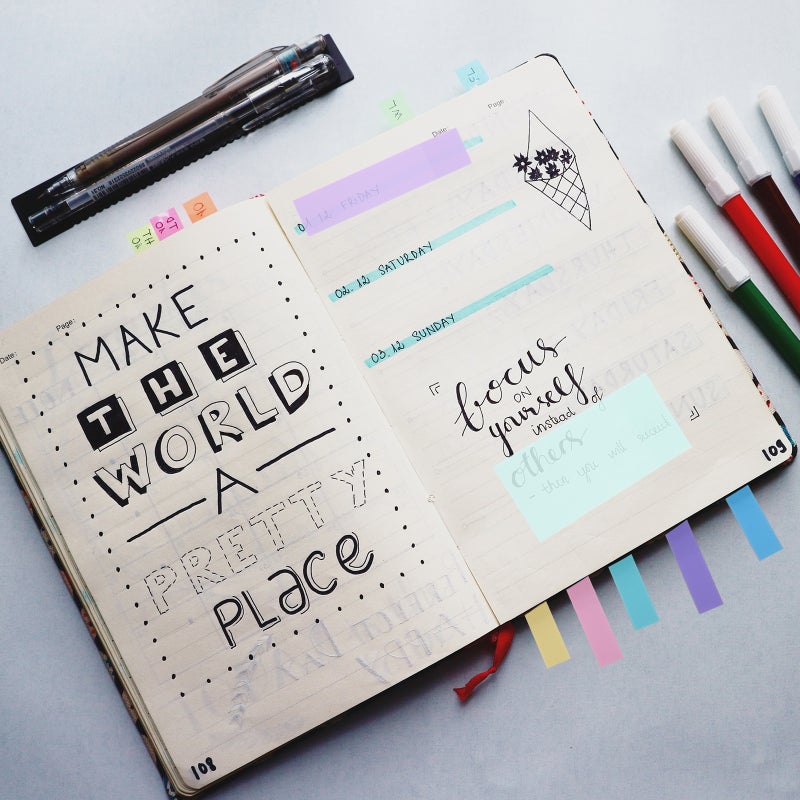 Date:
Page:
MAKE
THE
WORLD
A
PRETTY
PLACE
108
Date:
Page:
01 12 FRIDAY
02. 12 SATURDAY
03. 12 SUNDAY
focus
ON
yourself
instead of
others
- then you will succeed
109